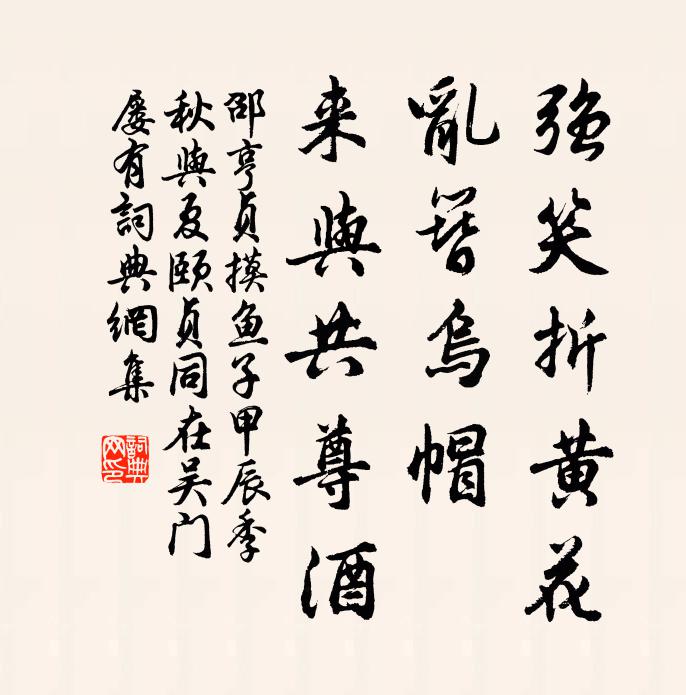 强笑折黄花
亂簪烏帽
来與共尊酒
邵亨貞摸鱼子甲辰季
秋與夏頤貞同在吴门
屡有詞典網集
詞典
网印